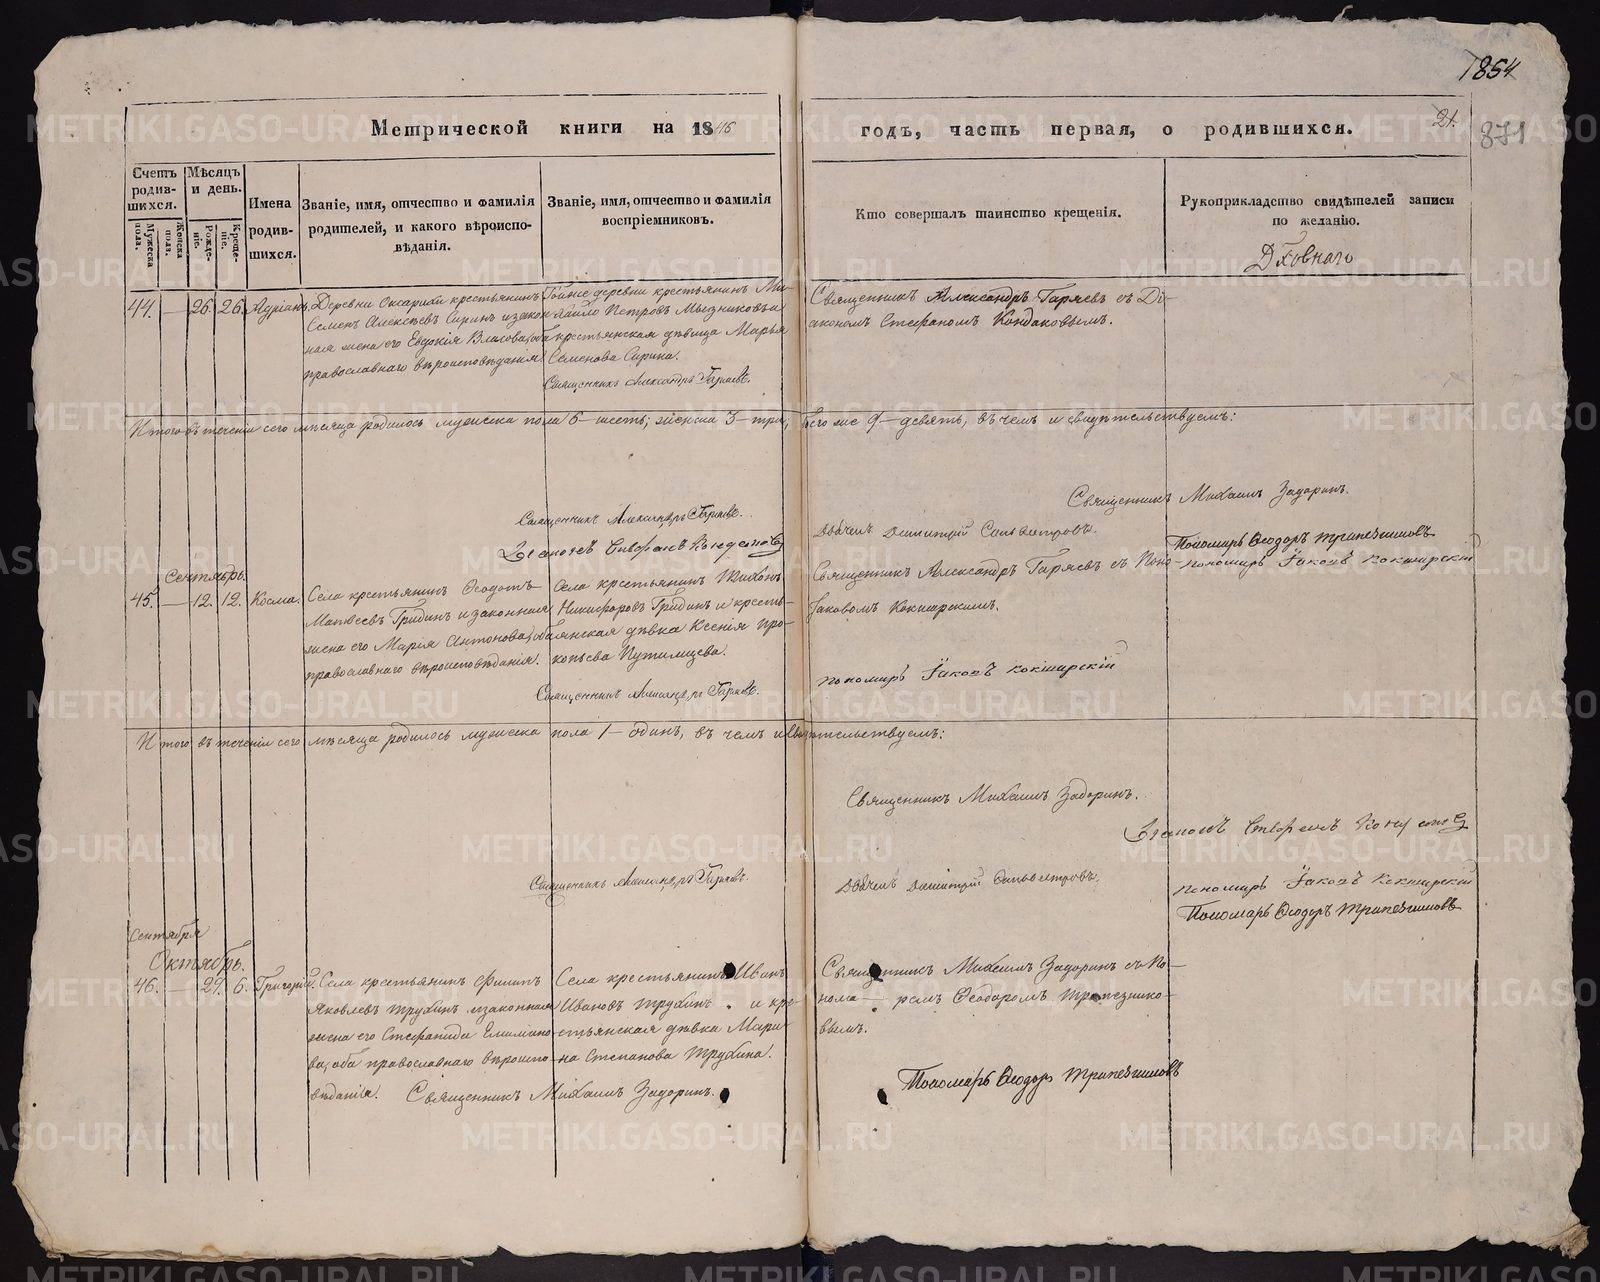 1854
Метрической книги на 1846
годъ, часть первая, о родившихся.
21.
871
Счетъ родив-шихся.
Мужеска пола.
Женска пола.
Мѣсяцъ и день.
Рожде-ніе.
Креще-ніе.
Имена родив-шихся.
Званіе, имя, отчество и фамилія
родителей, и какого вѣроиспо-
вѣданія.
Званіе, имя, отчество и фамилія
воспріемниковъ.
Кто совершалъ таинство крещенія.
Рукоприкладство свидѣтелей записи
по желанію.
44. — 26. 26. Адріанъ.
Деревни крестьянинъ
Семенъ Алексѣевъ Сиринъ и закон-
ная жена его Евдокія Власова, оба
православнаго вѣроисповѣданія
Тойже деревни крестьянинъ Ми-
хайло Петровъ и
крестьянская дѣвица Марья
Семенова Сирина.
Священникъ Александръ Гаряевъ.
Священникъ Александръ Гаряевъ съ Ді-
акономъ Стефаномъ Кондаковымъ.
Итого въ теченіи сего мѣсяца родилось мужеска пола 6 — шесть; женска 3 — три, всего же 9 — девять, въ чемъ и свидѣтельствуемъ:
Священникъ Михаилъ Задоринъ.
Священникъ Александръ Гаряевъ.
Діаконъ Стефанъ Кондаковъ
Дьячекъ Димитрій Сельвестровъ.
Пономарь Ѳеодоръ Трапезниковъ
Пономарь Іаковъ Кокшарскій
Сентябрь.
45. — 12. 12. Косма.
Села крестьянинъ Ѳедотъ
Матвѣевъ Гридинъ и законная
жена его Марія Антонова, оба
православнаго вѣроисповѣданія.
Села крестьянинъ Тихонъ
Никифоровъ Гридинъ и кресть-
янская дѣвка Ксенія Про-
копьева Путимцева.
Священникъ Александръ Гаряевъ.
Священникъ Александръ Гаряевъ съ Поно-
Іаковомъ Кокшарскимъ.
Пономарь Іаковъ Кокшарскій
Итого въ теченіи сего мѣсяца родилось мужеска пола 1 — одинъ, въ чемъ и свидѣтельствуемъ:
Священникъ Михаилъ Задоринъ.
Діаконъ Стефанъ Кондаковъ
Священникъ Александръ Гаряевъ.
Дьячекъ Димитрій Сельвестровъ.
Пономарь Іаковъ Кокшарскій
Пономарь Ѳеодоръ Трапезниковъ
Сентября
Октябрь.
46. — 29. 6. Григорій.
Села крестьянинъ Филипъ
Яковлевъ Трухинъ и законная
жена его Стефанида Емельяно-
ва, оба православнаго вѣроиспо-
вѣданія.
Села крестьянинъ Иванъ
Ивановъ Трухинъ и кре-
стьянская дѣвка Мари-
на Степанова Трухина.
Священникъ Михаилъ Задоринъ.
Священникъ Михаилъ Задоринъ съ По-
нома — ремъ Ѳеодоромъ Трапезнико-
вымъ.
Пономарь Ѳеодоръ Трапезниковъ
METRIKI.GASO-URAL.RU